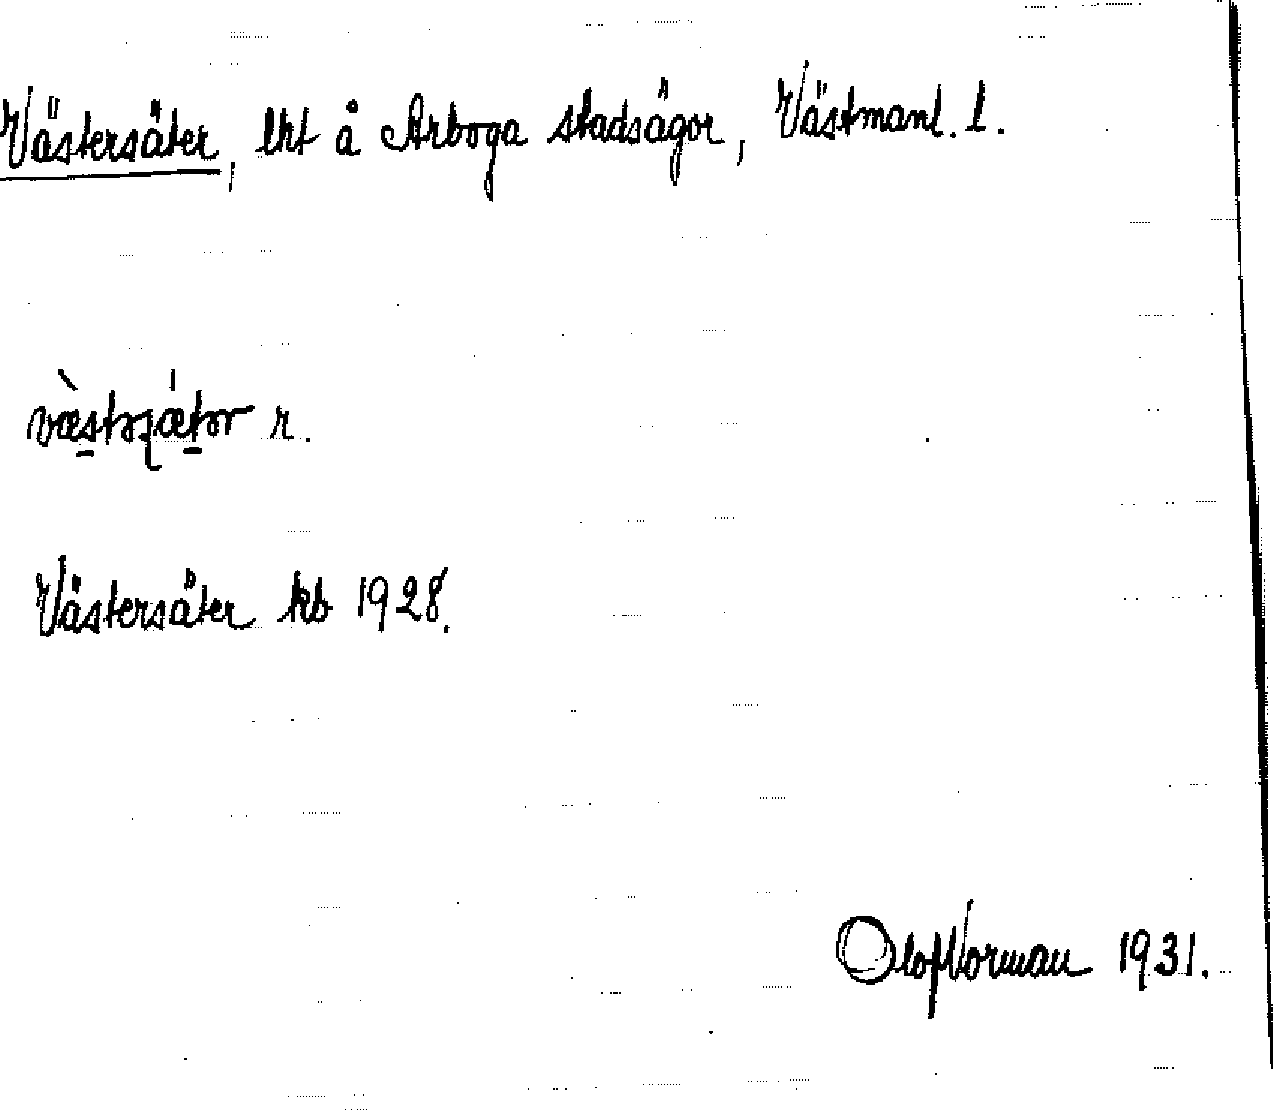 Västersäter, lht å Arboga stadsägor, Västmanl. l.
r.
Västersäter kb 1928.
Olof Norman 1931.